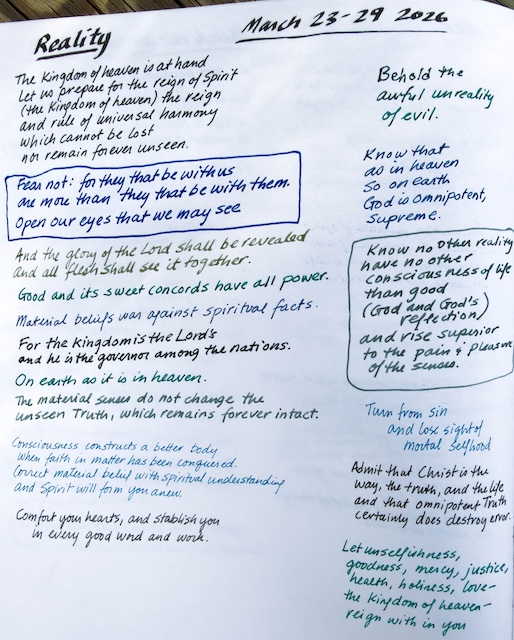 Reality
March 23-29 2026
The Kingdom of heaven is at hand
Let us prepare for the reign of Spirit
(the Kingdom of heaven) the reign
and rule of universal harmony
which cannot be lost
nor remain forever unseen.
Fear not: for they that be with us
are more than they that be with them.
Open our eyes that we may see
And the glory of the Lord shall be revealed
and all flesh shall see it together.
Good and its sweet concords have all power.
Material beliefs war against spiritual facts.
For the Kingdom is the Lord's
and he is the governor among the nations.
On earth as it is in heaven.
The material senses do not change the
unseen Truth, which remains forever intact.
Consciousness constructs a better body
when faith in matter has been conquered.
Correct material belief with spiritual understanding
and Spirit will form you anew.
Comfort your hearts, and stablish you
in every good word and work.
Behold the
awful unreality
of evil.
Know that
as in heaven
so on earth
God is omnipotent,
supreme.
Know no other reality
have no other
consciousness of life
than good
(God and God's
reflection)
and rise superior
to the pain & pleasure
of the senses.
Turn from sin
and lose sight of
mortal selfhood
Admit that Christ is the
way, the truth, and the life
and that omnipotent Truth
certainly does destroy error.
Let unselfishness,
goodness, mercy, justice,
health, holiness, love-
the kingdom of heaven-
reign with in you